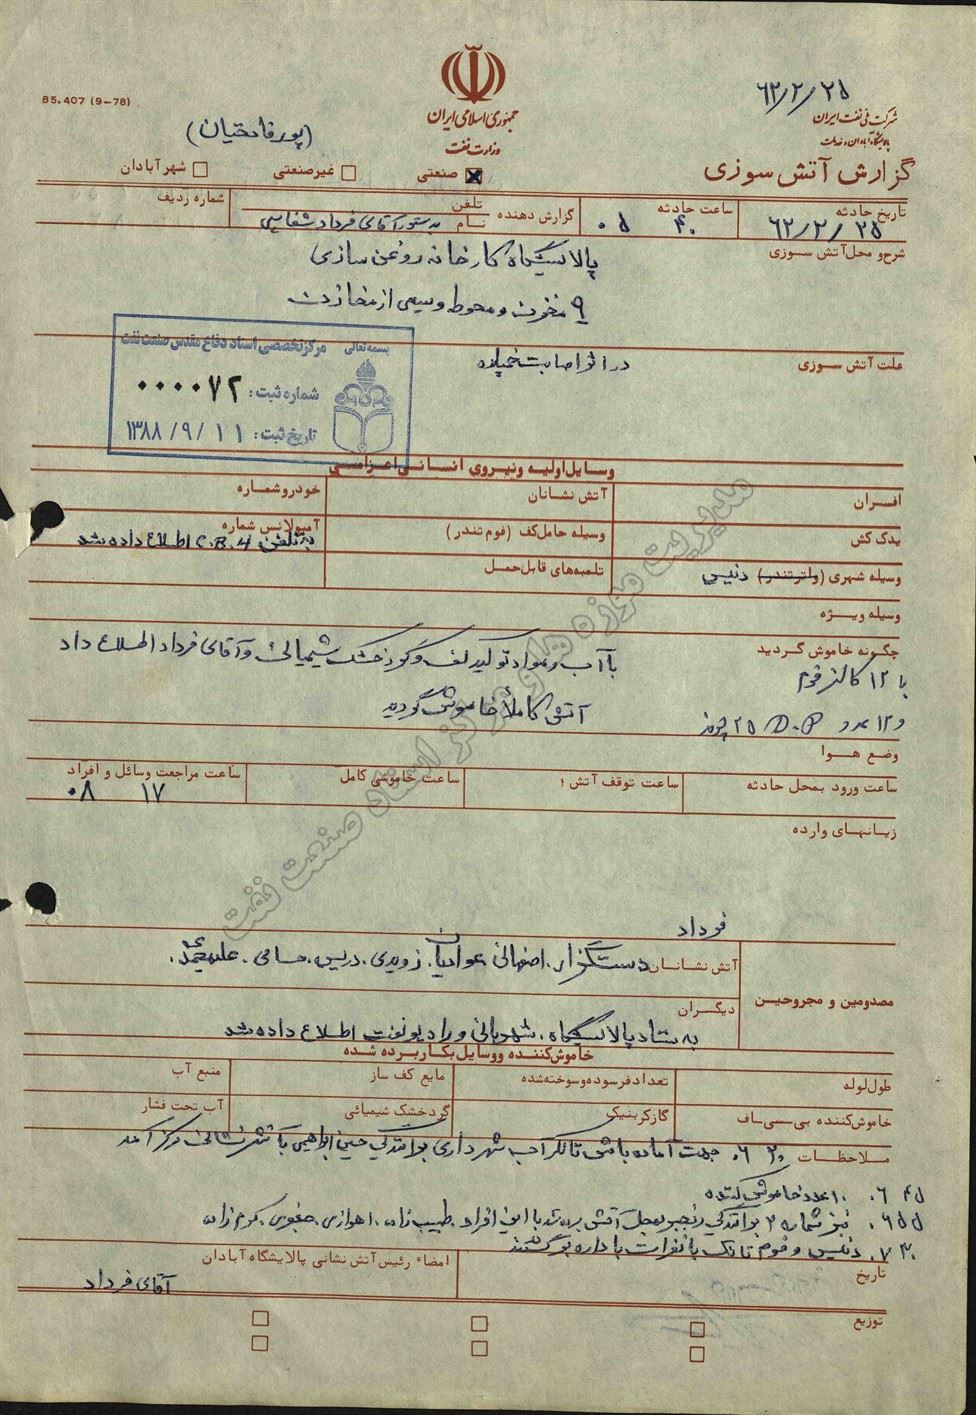 ۶۲/۲/۲۵
85.407 (9-78)
جمهوری اسلامی ایران
وزارت نفت
شرکت ملی نفت ایران
پالایشگاه آبادان و خدمات
(پورفلاحتیان)
گزارش آتش سوزی
صنعتی
غیرصنعتی
شهر آبادان
تاریخ حادثه
۶۲/۲/۲۵
ساعت حادثه
۰۵ ۴۰
گزارش دهنده
تلفن
نام
بدستور آقای فرداد
شماره ردیف
شرح و محل آتش سوزی
پالایشگاه کارخانه روغن سازی
۹ مخزن و محوطه وسیعی از مخازن
علت آتش سوزی
در اثر اصابت خمپاره
بسمه تعالی
مرکز تخصصی اسناد دفاع مقدس صنعت نفت
شماره ثبت: ۰۰۰۰۰۷۲
تاریخ ثبت: ۱۳۸۸/۹/۱۱
وسایل اولیه و نیروی انسانی اعزامی
افسران
آتش نشانان
خودرو شماره
یدک کش
وسیله حامل کف (فوم تندر)
آمبولانس شماره
به تلفن C.B.4 اطلاع داده شد
وسیله شهری (واتر تندر) دنیس
تلمبه‌های قابل حمل
وسیله ویژه
چگونه خاموش گردید
با آب و مواد تولید کف و گرد خشک شیمیائی و آقای فرداد اطلاع داد
با ۱۲ گالن فوم
آتش کاملاً خاموش گردید
و ۱۲ عدد D.P ۲۵ پوند
وضع هوا
ساعت ورود بمحل حادثه
ساعت توقف آتش
ساعت خاموشی کامل
ساعت مراجعت وسائل و افراد
۰۸ ۱۷
زیانهای وارده
فرداد
مصدومین و مجروحین
آتش نشانان
دستگزار، اصفهانی، عوانیان، زویدی، دریس، حسامی،
دیگران
به ستاد پالایشگاه، شهربانی و رادیو نفت اطلاع داده شد
خاموش کننده و وسایل بکار برده شده
طول لوله
تعداد فرسوده و سوخته شده
مایع کف ساز
منبع آب
خاموش کننده بی-سی-اف
گاز کربنیک
گرد خشک شیمیائی
آب تحت فشار
ملاحظات
۰۶ ۲۰ جهت آماده باش تانکر آب شهرداری برانندگی حسین ابراهیمی به آتش نشانی مرکز آمد
۰۶ ۴۵ ۱۰ عدد خاموش کننده
۰۶ ۵۵ نیز شماره ۲ برانندگی رنجبر بمحل آتش برده شد با این افراد طبیب زاده، اهوازی، جعفری، کرم زاده
۰۷ ۳۰ دنیس و فوم تانک با نفرات باداره برگشتند
تاریخ
امضاء رئیس آتش نشانی پالایشگاه آبادان
آقای فرداد
توزیع
مدیریت موزه ها و مرکز اسناد صنعت نفت